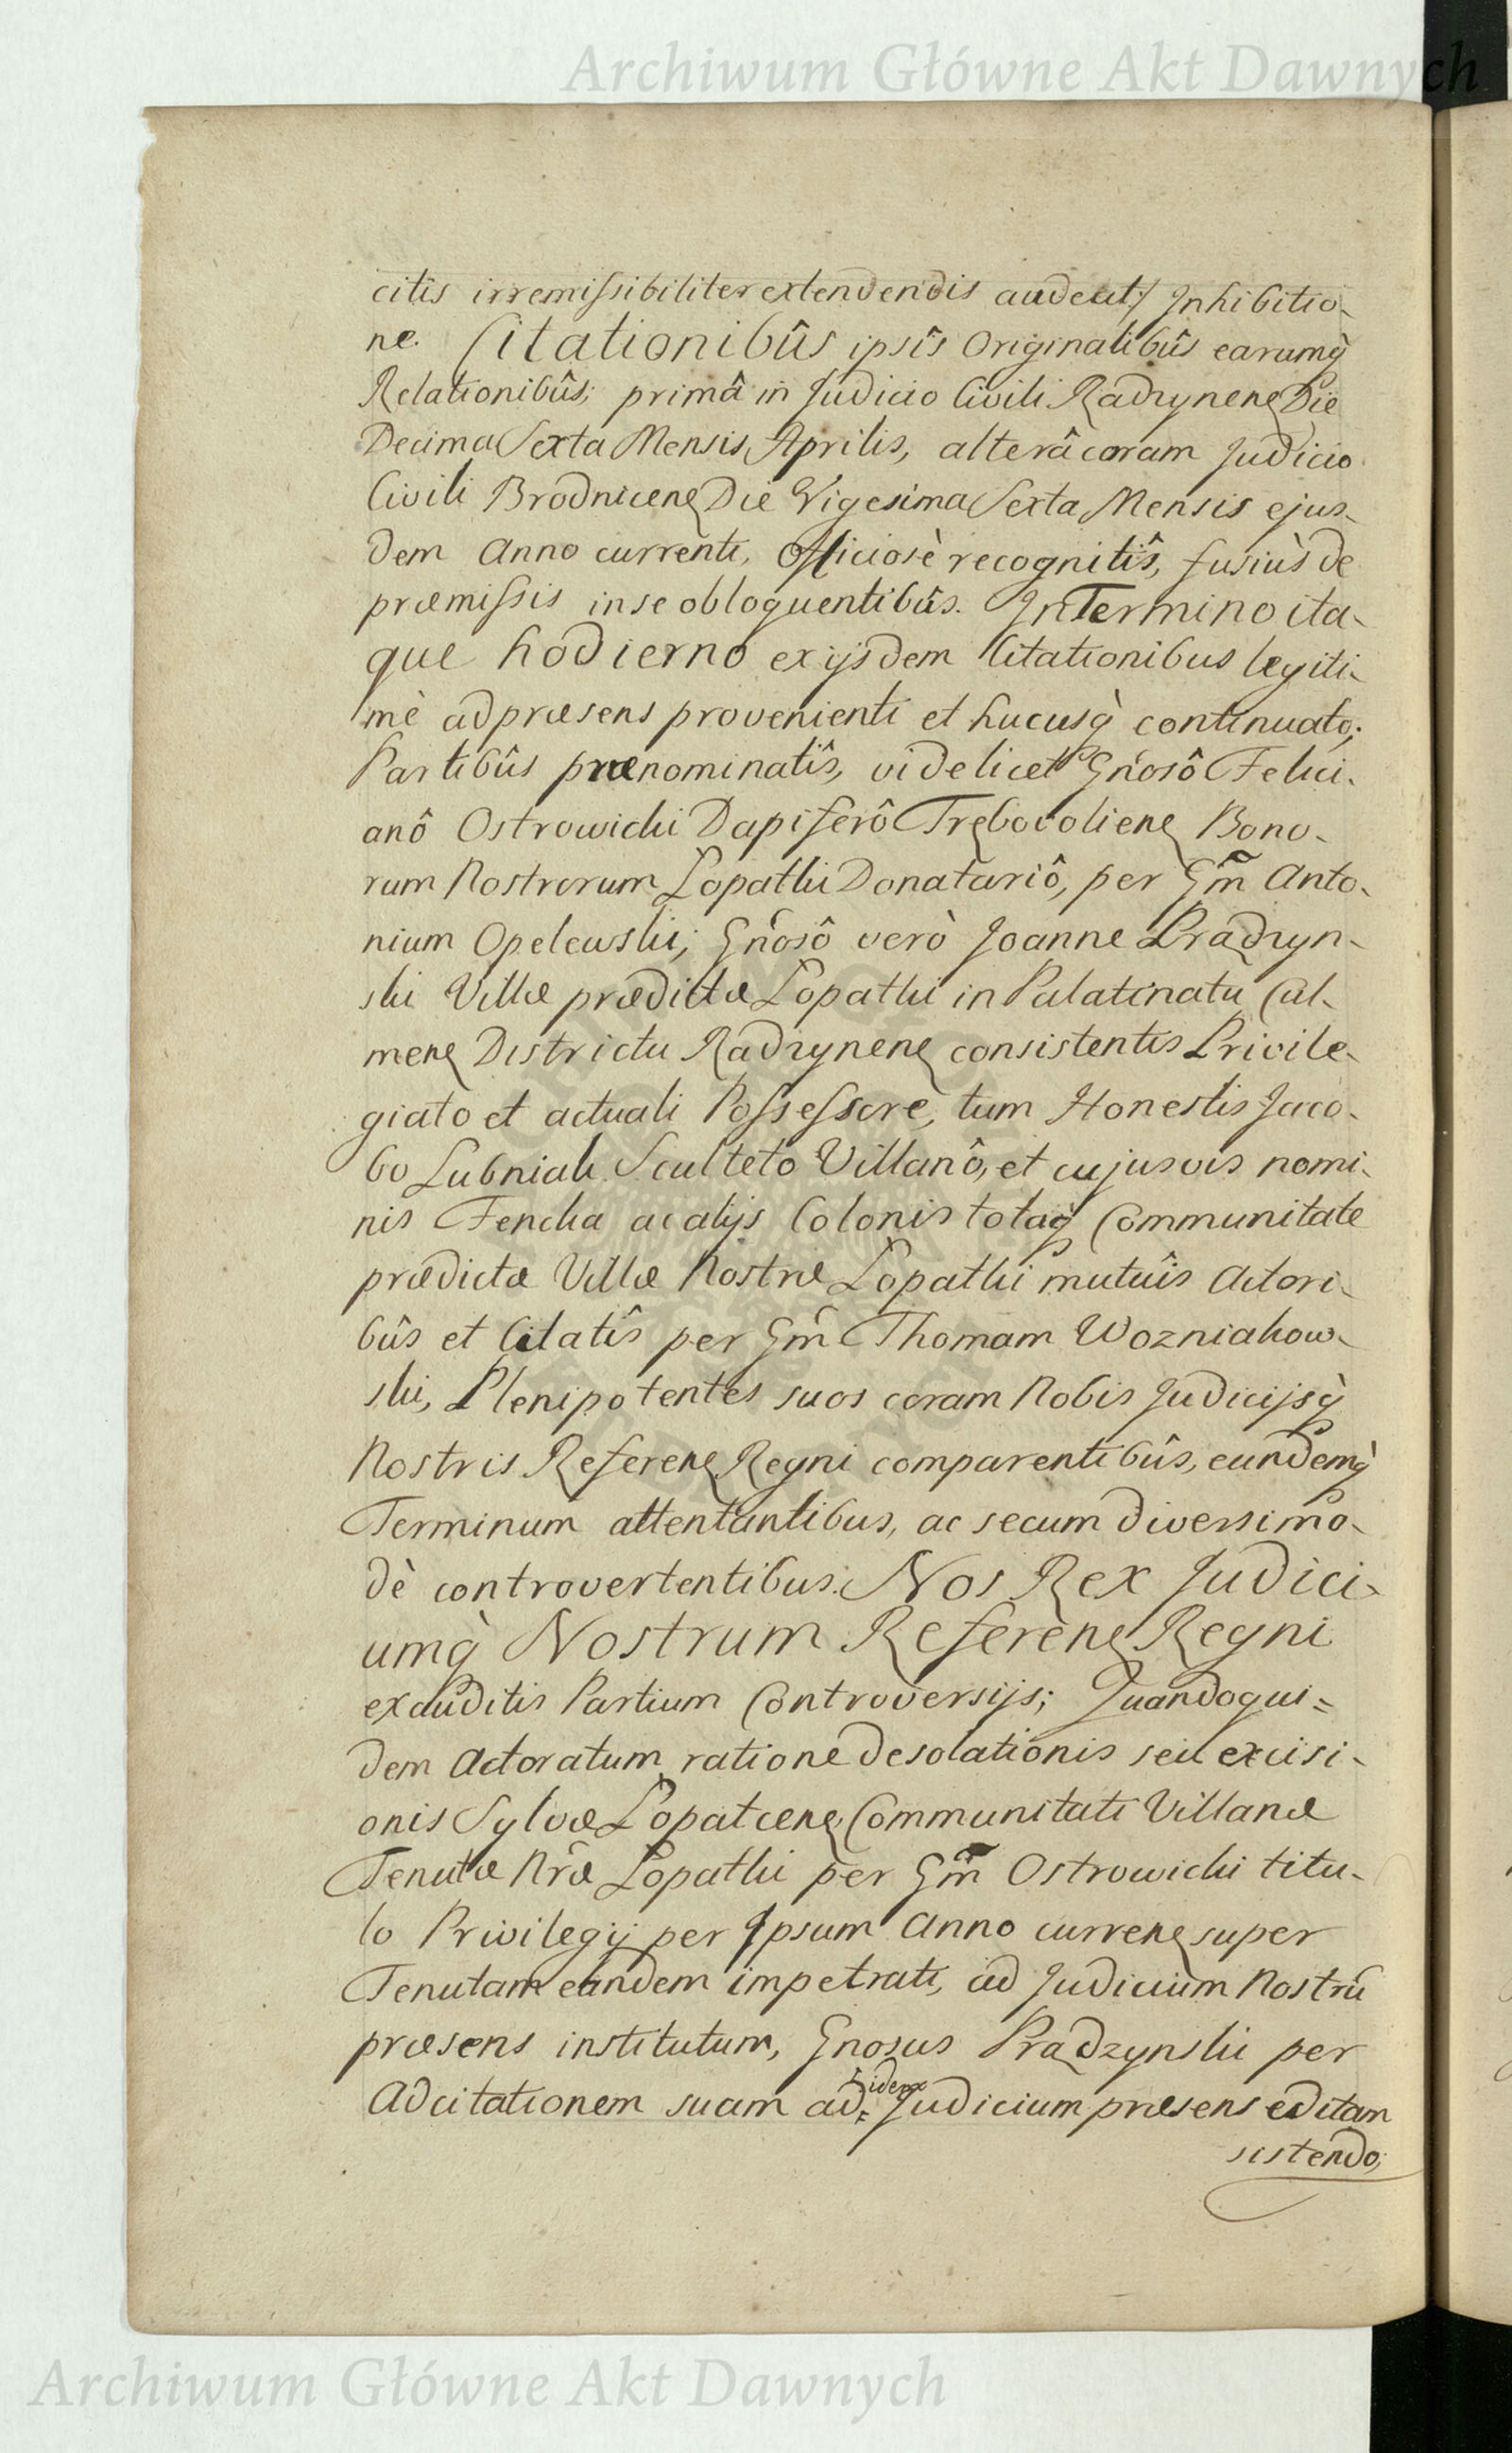 Archiwum Główne Akt Dawnych
citis irremissibiliter extendendis audeat:/ Inhibitio-
ne. Citationibûs ipsîs Originalibûs earumq̀
Relationibûs; primâ in Judicio Civili Radzynen Die
Decima Sexta Mensis Aprilis, alterâ coram Judicio
Civili Brodnicen Die Vigesima Sexta Mensis ejus-
dem Anno currenti, Officiosè recognitîs, fusiùs de
præmissis in se obloquentibûs. In Termino ita-
que hodierno ex ijsdem Citationibus legiti-
mè ad præsens provenienti et hucusq̀ continuato;
Partibûs prænominatîs, videlicet Gnosô Felici-
anô Ostrowicki Dapiferô Trębovolien Bono-
rum Nostrorum Lopatki Donatariô, per Gm̃ Anto-
nium Opelewski; Gnosô verò Joanne Prądzyn-
ski Villæ prædictæ Lopatki in Palatinatu Cul-
men Districtu Radzynen consistentis Privile-
giato et actuali Possessore, tum Honestis Jaco-
bo Lubniak Sculteto Villanô, et cujusvis nomi-
nis Fencka ac alijs Colonis totaq̀ Communitate
prædictæ Villæ Nostræ Lopatki mutuîs Actori-
bûs et Citatîs per Gm̃ Thomam Wozniakow-
ski, Plenipotentes suos coram Nobis Judicijsq̀
Nostris Referen Regni comparentibûs, eundemq̀
Terminum attentantibus, ac secum diversimo-
dè controvertentibus. Nos Rex Judici-
umq̀ Nostrum Referen Regni
exauditis Partium Controversijs; Quandoqui=
dem Actoratum ratione desolationis seu excisi-
onis Sylvæ Lopatcen Communitati Villanæ
Tenutæ Nr̃æ Lopatki per Gm̃ Ostrowicki titu-
lo Privilegij per Ipsum Anno curren super
Tenutam eandem impetrati, ad Judicium Nostrũ
præsens institutum, Gnosus Prądzynski per
Adcitationem suam ad idem Judicium præsens editam
sistendo;
Archiwum Główne Akt Dawnych